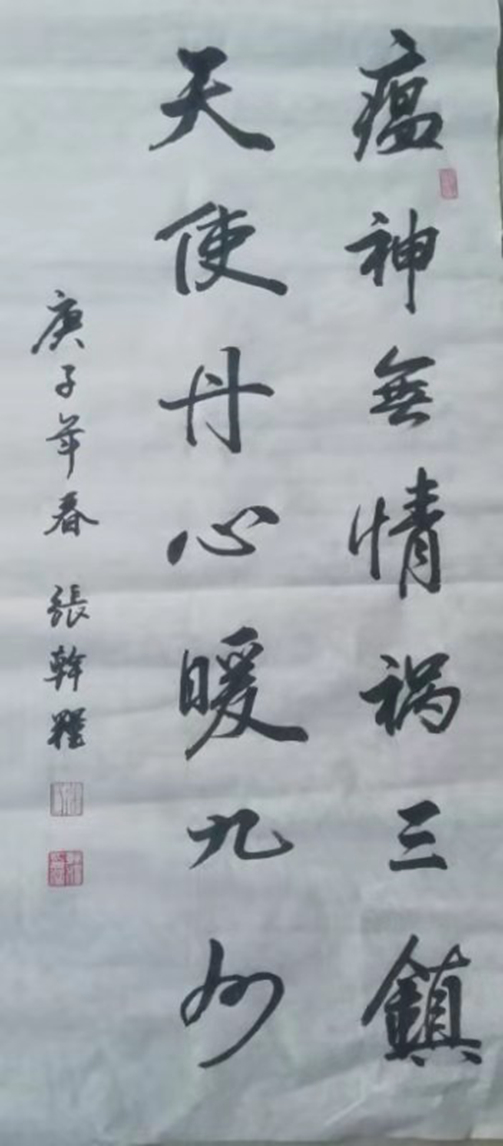 瘟神無情禍三鎮
天使丹心暖九州
庚子年春 張幹